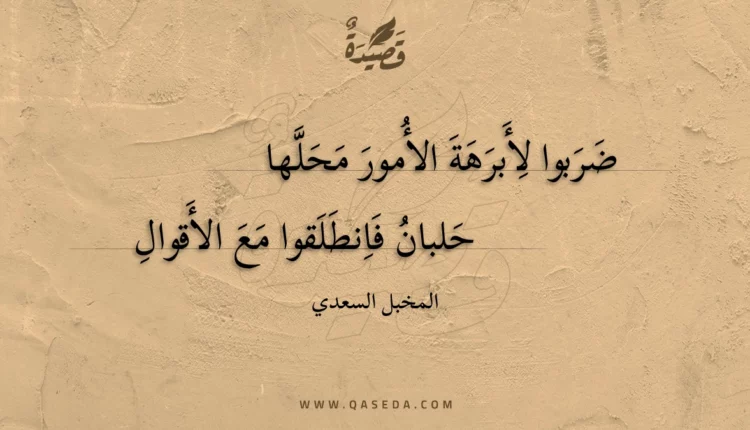 قَصِيدَةٌ
ضَرَبوا لِأَبرَهَةَ الأُمورَ مَحَلَّها
حَلبانُ فَاِنطَلَقوا مَعَ الأَقوالِ
المخبل السعدي
WWW.QASEDA.COM